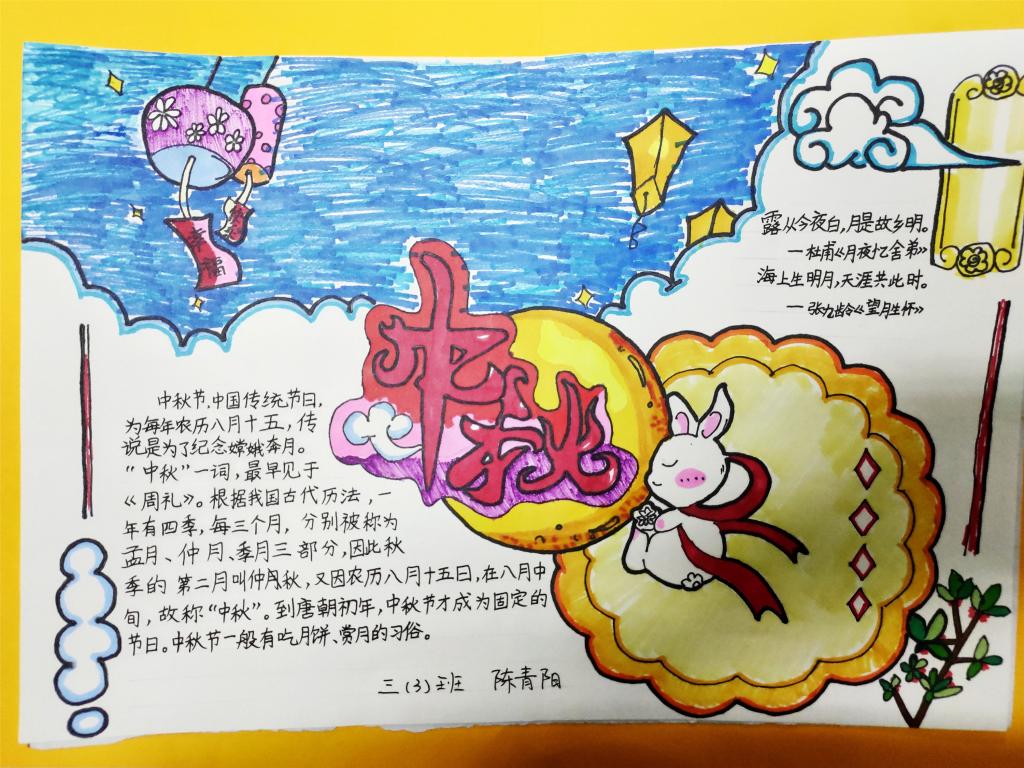 幸福
露从今夜白,月是故乡明。
—杜甫《月夜忆舍弟》
海上生明月,天涯共此时。
—张九龄《望月生怀》
中秋
中秋节,中国传统节日,
为每年农历八月十五,传
说是为了纪念嫦娥奔月。
“中秋”一词,最早见于
《周礼》。根据我国古代历法,一
年有四季,每三个月,分别被称为
孟月、仲月、季月三部分,因此秋
季的第二月叫仲秋,又因农历八月十五日,在八月中
旬,故称“中秋”。到唐朝初年,中秋节才成为固定的
节日。中秋节一般有吃月饼、赏月的习俗。
三(3)班 陈青阳